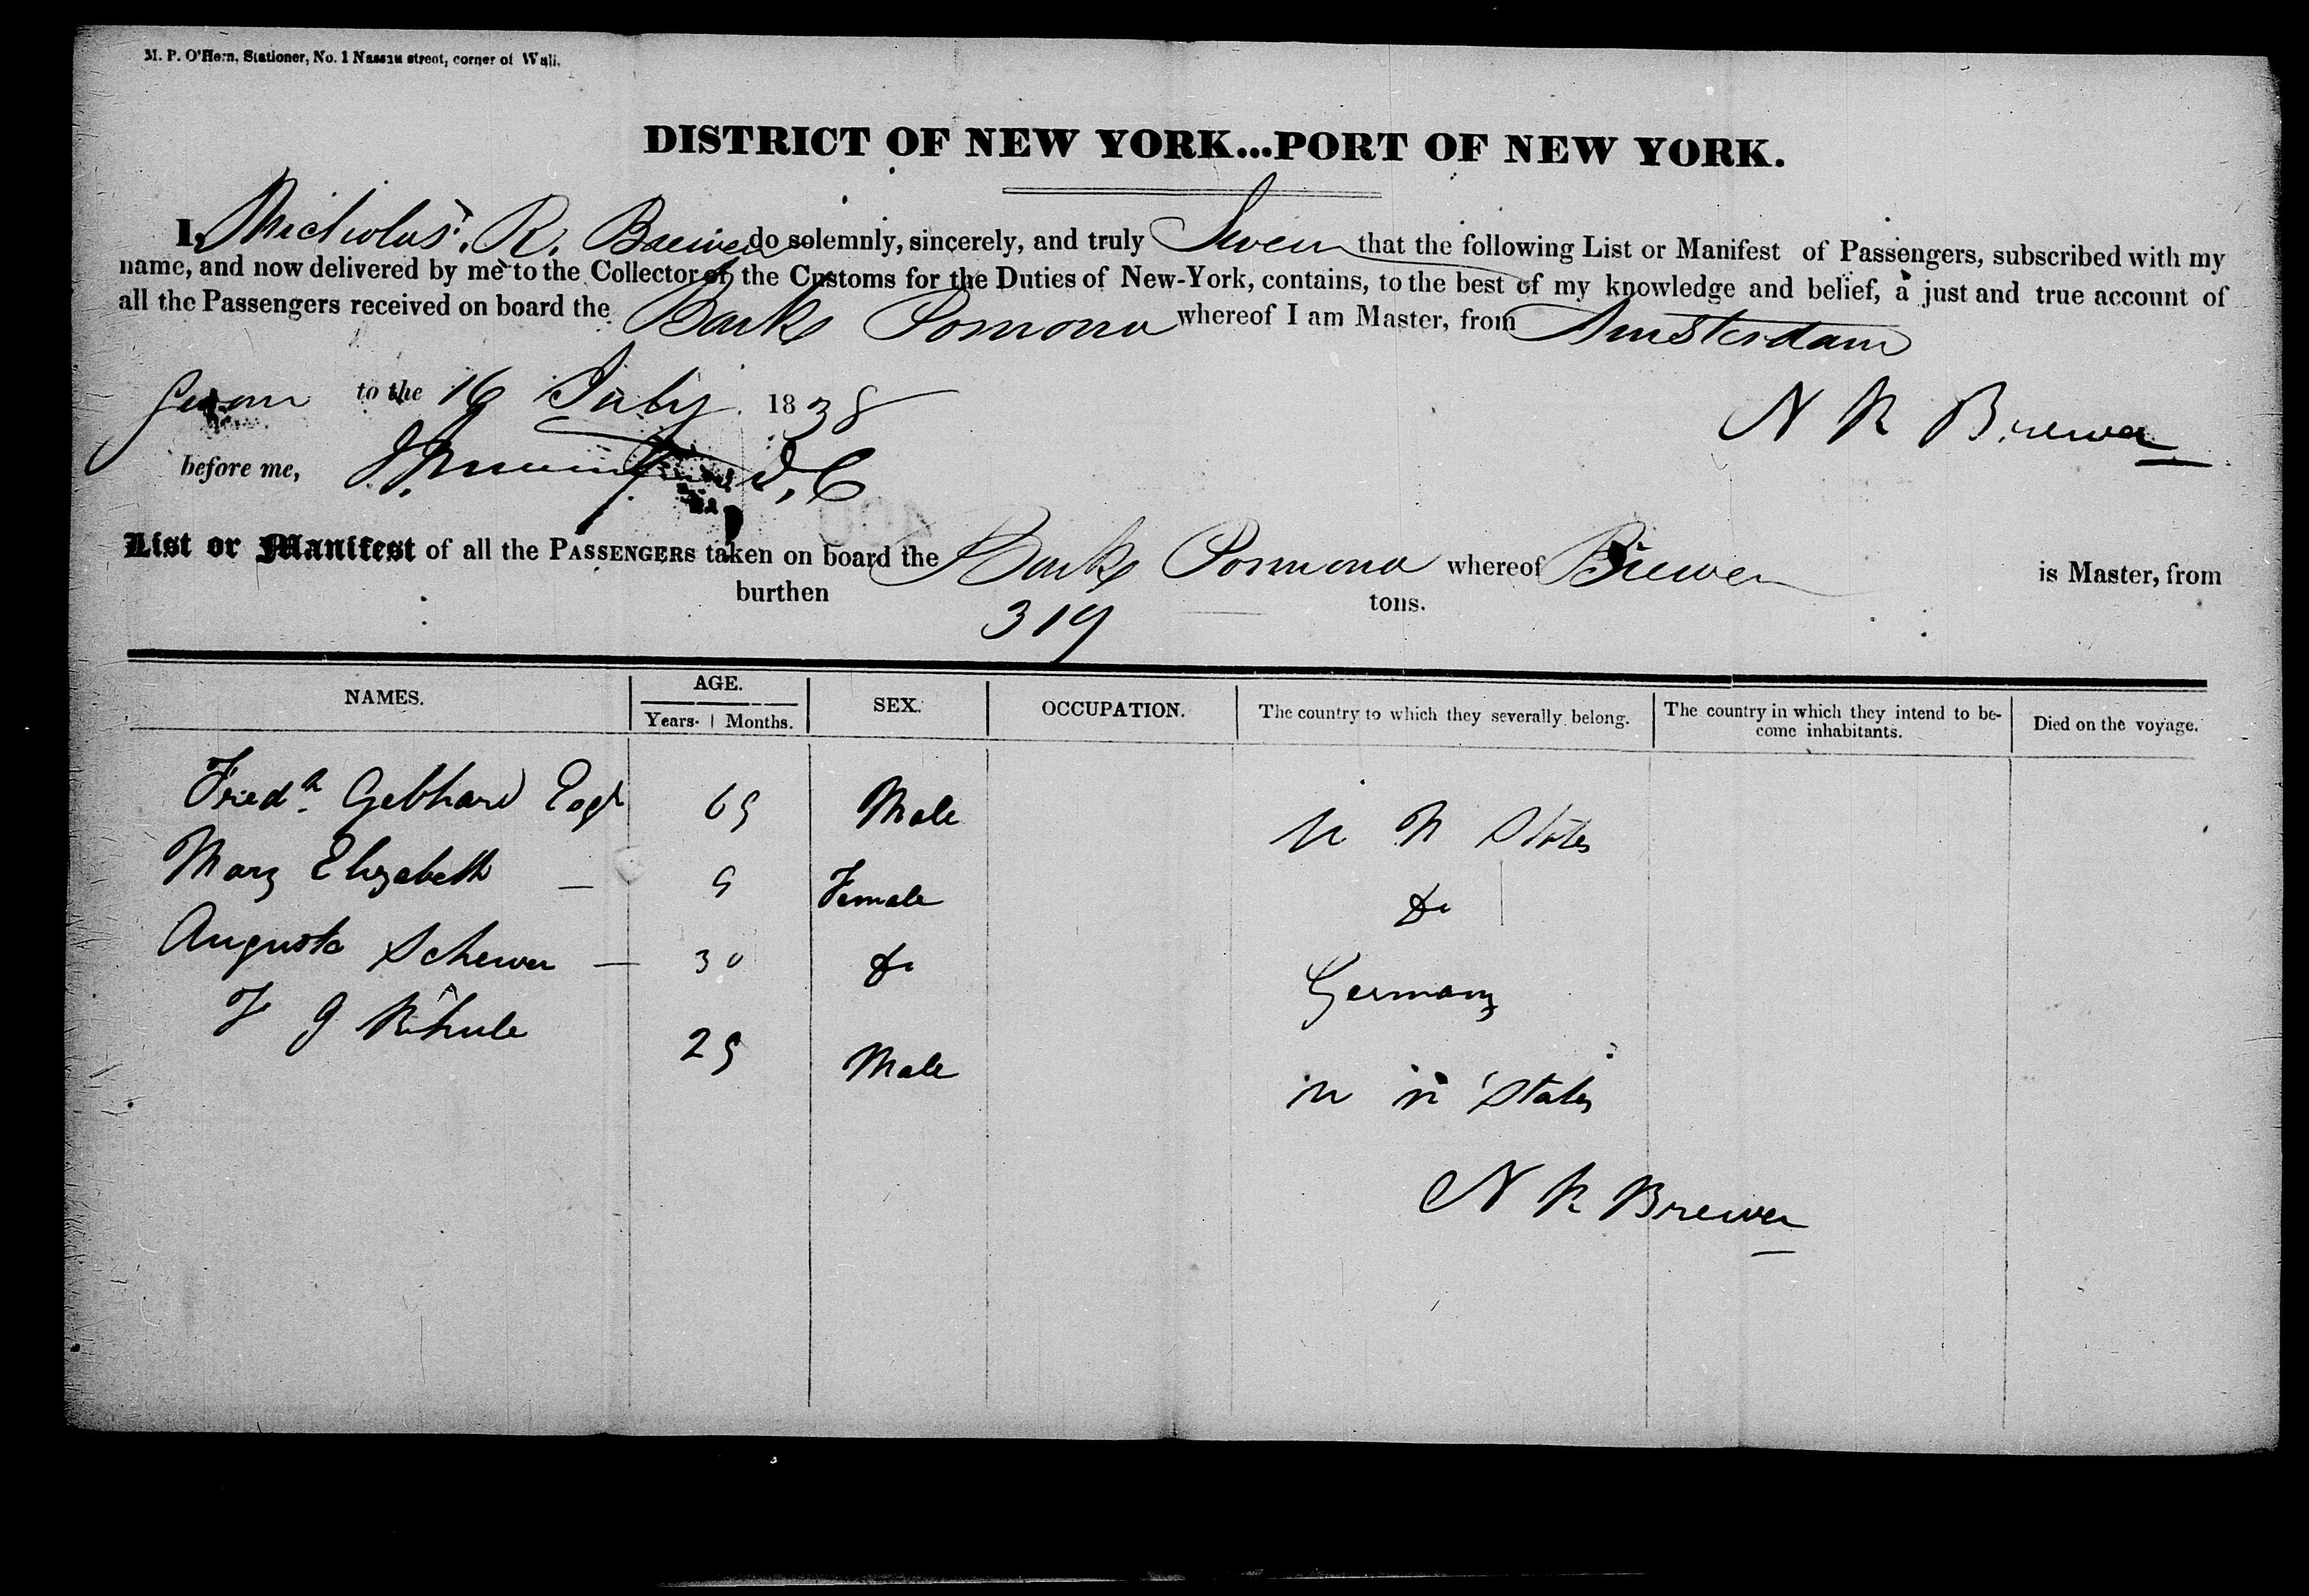 M. P. O'Hern, Stationer, No. 1 Nassau street, corner of Wall.
DISTRICT OF NEW YORK...PORT OF NEW YORK.
I, Nicholas R. Brewer do solemnly, sincerely, and truly Swear that the following List or Manifest of Passengers, subscribed with my
name, and now delivered by me to the Collector of the Customs for the Duties of New-York, contains, to the best of my knowledge and belief, a just and true account of
all the Passengers received on board the Barke Pomona whereof I am Master, from Amsterdam
Sworn to the 16 July 1838
N R Brewer
before me, D, C
List or Manifest of all the PASSENGERS taken on board the Barke Pomona whereof Brewer is Master, from
burthen 319 tons.
NAMES. AGE. SEX. OCCUPATION. The country to which they severally belong. The country in which they intend to be- come inhabitants. Died on the voyage.
Years. Months.
Fredk. Gebhard Esqr 65 Male U N States
Mary Elizabeth — 9 Female Do
Augusta Scherer — 30 Do Germany
F G 25 Male U N States
N R Brewer